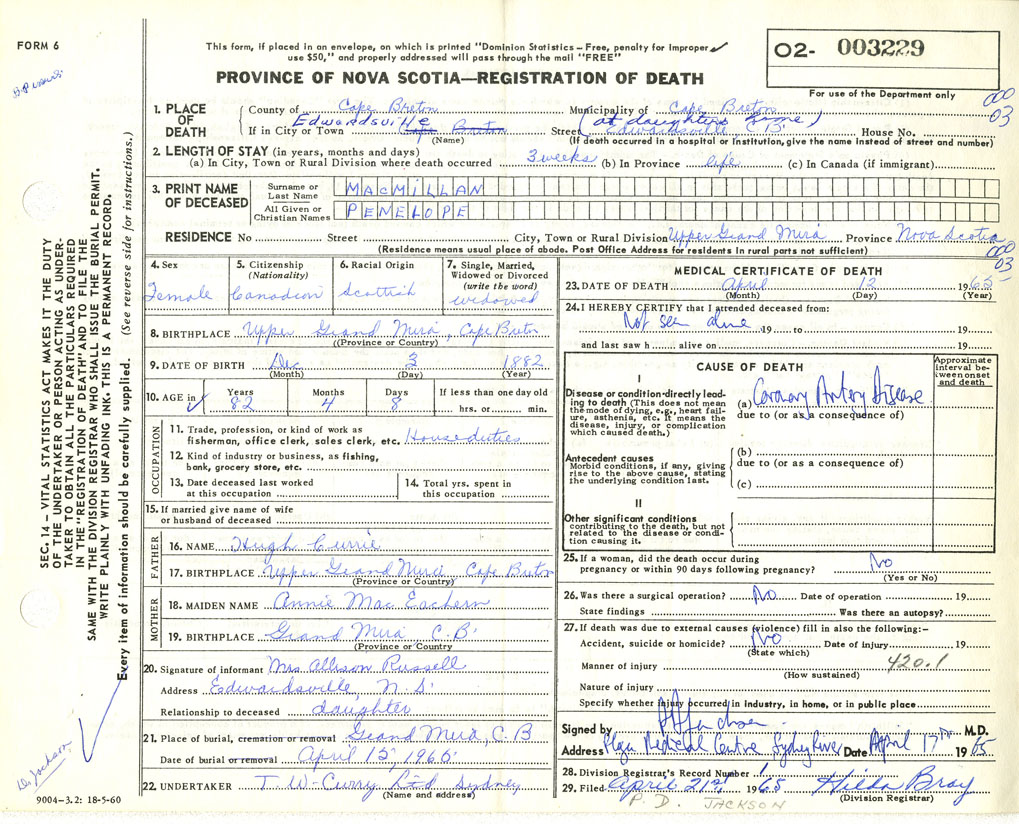 FORM 6
This form, if placed in an envelope, on which is printed "Dominion Statistics – Free, penalty for improper
use $50," and properly addressed will pass through the mail "FREE"
PROVINCE OF NOVA SCOTIA—REGISTRATION OF DEATH
02- 003229
For use of the Department only
000
03
1. PLACE OF DEATH
County of Cape Breton Municipality of Cape Breton
Edwardsville (at daughters home)
If in City or Town Cape Breton Street Edwardsville C B' House No.
(Name) (If death occurred in a hospital or institution, give the name instead of street and number)
2. LENGTH OF STAY (in years, months and days)
(a) In City, Town or Rural Division where death occurred 3 weeks (b) In Province life (c) In Canada (if immigrant)
3. PRINT NAME OF DECEASED
Surname or Last Name MACMILLAN
All Given or Christian Names PENELOPE
RESIDENCE No Street City, Town or Rural Division Upper Grand Mira Province Nova Scotia
(Residence means usual place of abode. Post Office Address for residents in rural parts not sufficient)
000
03
4. Sex Female
5. Citizenship (Nationality) Canadian
6. Racial Origin Scottish
7. Single, Married, Widowed or Divorced (write the word) widowed
8. BIRTHPLACE Upper Grand Mira, Cape Breton
((Province or Country)
9. DATE OF BIRTH Dec 3 1882
(Month) (Day) (Year)
10. AGE in Years 82 Months 4 Days 8 If less than one day old hrs. or min.
OCCUPATION
11. Trade, profession, or kind of work as
fisherman, office clerk, sales clerk, etc. House duties
12. Kind of industry or business, as fishing,
bank, grocery store, etc.
13. Date deceased last worked
at this occupation
14. Total yrs. spent in
this occupation
15. If married give name of wife
or husband of deceased
FATHER
16. NAME Hugh Currie
17. BIRTHPLACE Upper Grand Mira, Cape Breton
(Province or Country)
MOTHER
18. MAIDEN NAME Annie Mac Eachern
19. BIRTHPLACE Grand Mira, C.B'
(Province or Country
20. Signature of informant Mrs. Allison Russell
Address Edwardsville, N. S'
Relationship to deceased daughter
21. Place of burial, cremation or removal Grand Mira, C.B
Date of burial or removal April 15, 1965
22. UNDERTAKER T. W. Curry Ltd Sydney
(Name and address)
MEDICAL CERTIFICATE OF DEATH
23. DATE OF DEATH April 12 1965
(Month) (Day) (Year)
24. I HEREBY CERTIFY that I attended deceased from:
Not seen alive 19 to 19
and last saw h alive on 19
CAUSE OF DEATH
Approximate interval between onset and death
I
Disease or condition directly leading to death (This does not mean
the mode of dying, e.g., heart failure, asthenia, etc. It means the
disease, injury, or complication
which caused death.)
(a) Coronary Artery Disease
due to (or as a consequence of)
Antecedent causes
Morbid conditions, if any, giving
rise to the above cause, stating
the underlying condition last.
(b)
due to (or as a consequence of)
(c)
II
Other significant conditions
contributing to the death, but not
related to the disease or condition causing it.
25. If a woman, did the death occur during
pregnancy or within 90 days following pregnancy? No
(Yes or No)
26. Was there a surgical operation? No Date of operation 19
State findings Was there an autopsy?
27. If death was due to external causes (violence) fill in also the following:–
Accident, suicide or homicide? No Date of injury 19
(State which)
Manner of injury 420.1
(How sustained)
Nature of injury
Specify whether injury occurred in industry, in home, or in public place
Signed by M.D.
Address Medical Centre Sydney River Date April 17 1965
28. Division Registrar's Record Number 1
29. Filed April 21st 1965 Hilda Bray
(Division Registrar)
P. D. JACKSON
SEC. 14 – VITAL STATISTICS ACT MAKES IT THE DUTY
OF THE UNDERTAKER OR PERSON ACTING AS UNDERTAKER TO OBTAIN ALL THE PARTICULARS REQUIRED
IN THE "REGISTRATION OF DEATH" AND TO FILE THE
SAME WITH THE DIVISION REGISTRAR WHO SHALL ISSUE THE BURIAL PERMIT.
WRITE PLAINLY WITH UNFADING INK. THIS IS A PERMANENT RECORD.
Every item of information should be carefully supplied. (See reverse side for instructions.)
9004-3.2: 18-5-60